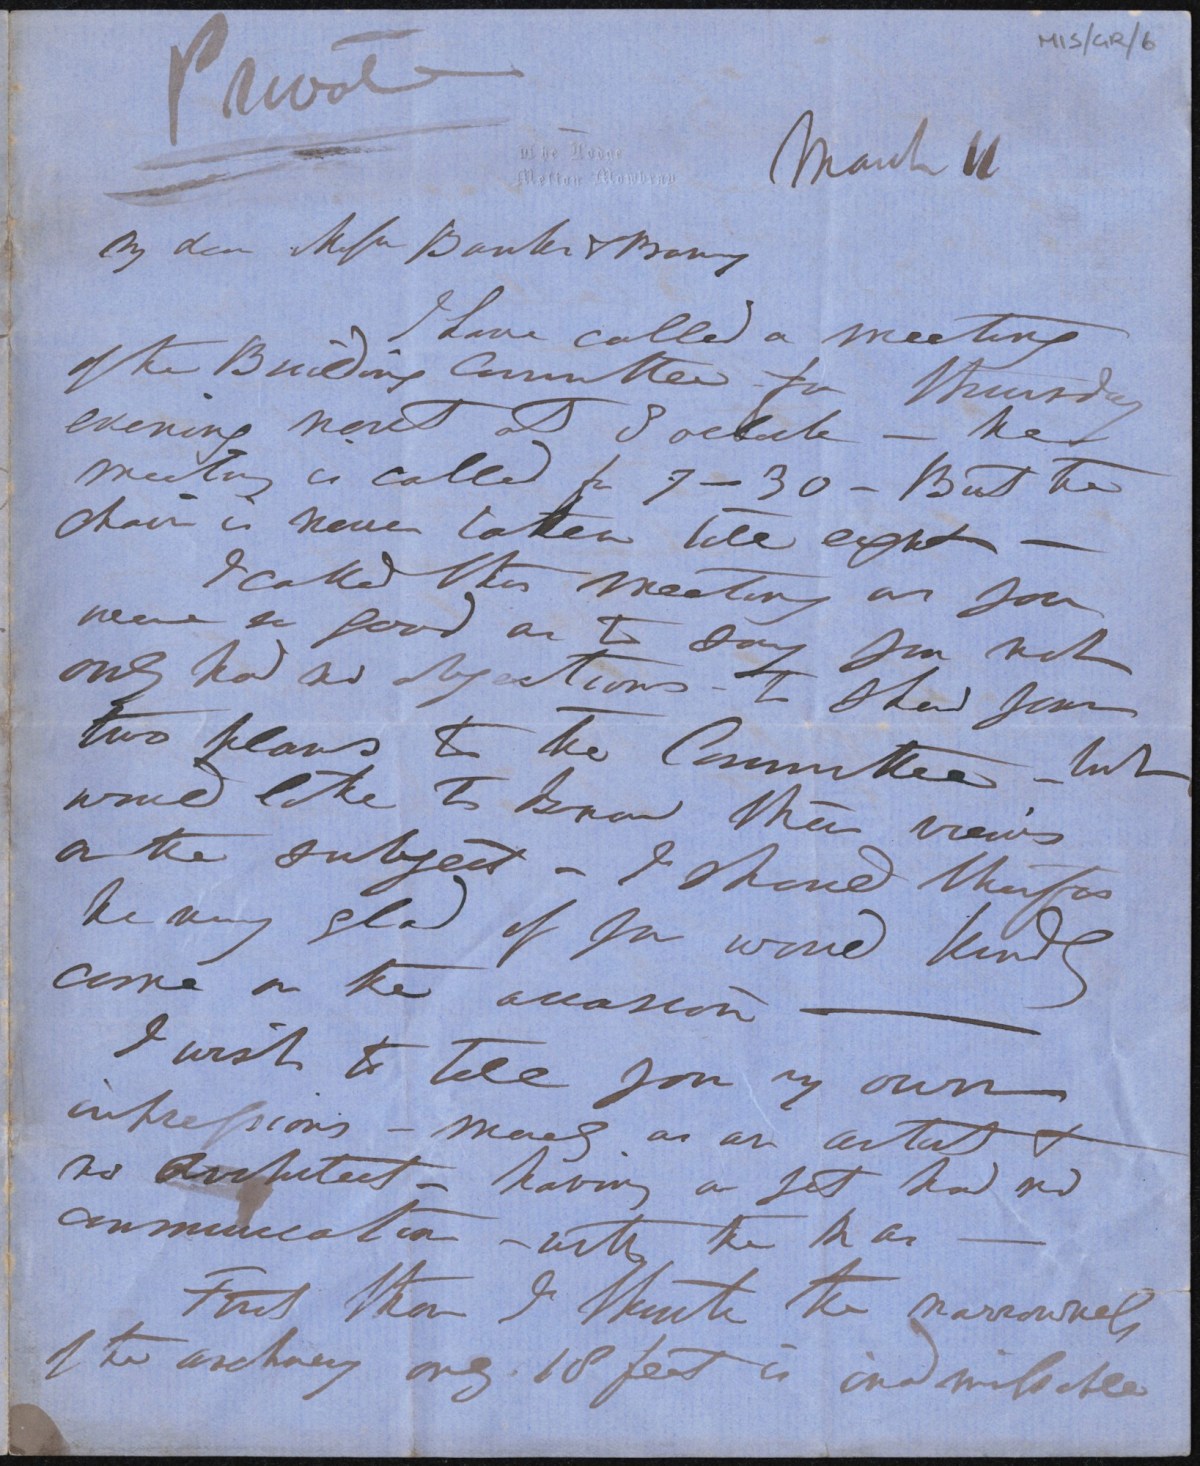 MIS/GR/6
Private
The Lodge
Melton Mowbray
March 11
My dear Messrs Banks & Barry
I have called a meeting
of the Building Committee for Thursday
evening next at 8 oclock — the
meeting is called for 7–30 – But the
chair is never taken till eight —
I called this meeting as you
were so good as to say you not
only had no objections – to shew your
two plans to the Committee – but
would like to know their views
on the subject – I should therefore
be very glad if you would kindly
come on the occasion —
I wish to tell you my own
impressions – merely as an artist &
no architect – having as yet had no
communication – with the R As —
First then I think the narrowness
of the archway only 18 feet is inadmissable